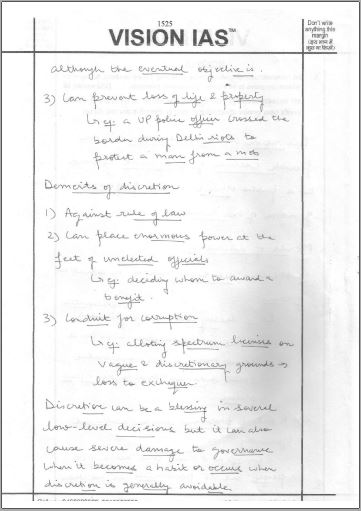 1525
VISION IAS™
Don't write
anything this
margin
although the eventual objective is.
3) Can prevent loss of life & property
↳ eg: a UP police officer crossed the
border during Delhi riots to
protect a man from a mob
Demerits of discretion
1) Against rule of law
2) Can place enormous power at the
feet of unelected officials
↳ eg: deciding whom to award a
benefit.
3) Conduit for corruption
↳ eg: alloting spectrum licenses on
vague & discretionary grounds →
loss to exchequer
Discretion can be a blessing in several
low-level decisions but it can also
cause severe damage to governance
when it becomes a habit or occurs when
discretion is generally avoidable.